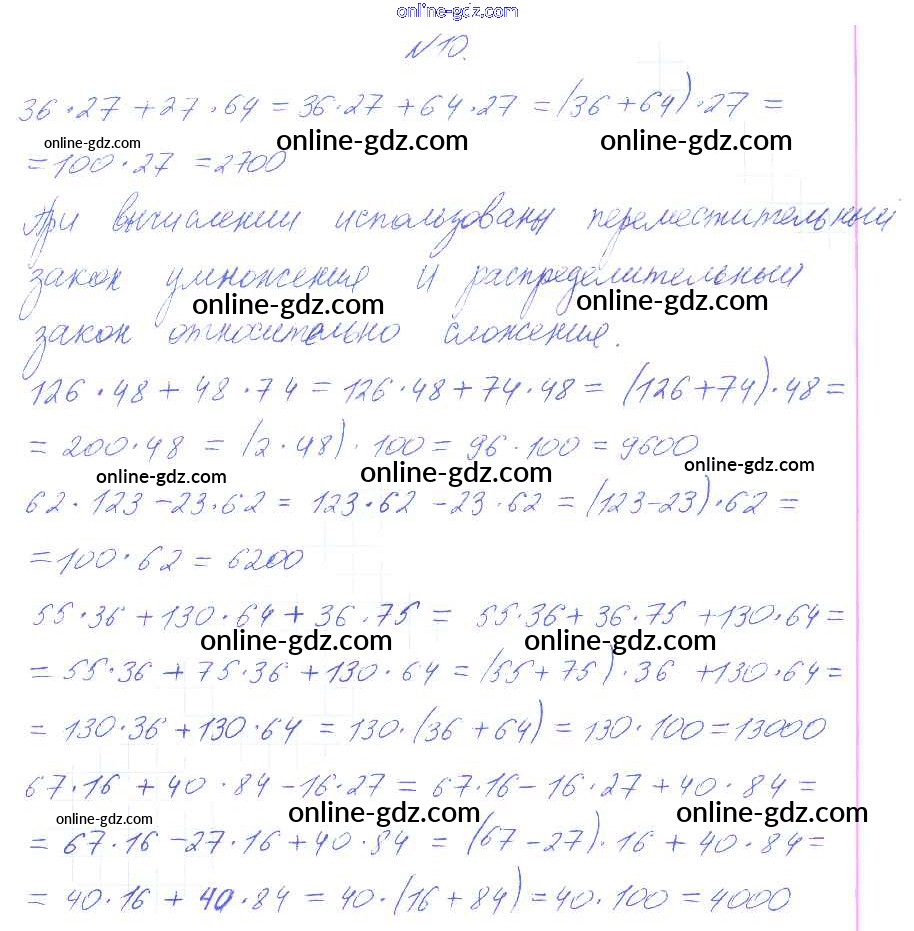 online-gdz.com
№10.
36·27 + 27·64 = 36·27 + 64·27 = (36+64)·27 =
online-gdz.com online-gdz.com online-gdz.com
= 100·27 = 2700
При вычислении использованы переместительный
закон умножения и распределительный
online-gdz.com online-gdz.com
закон относительно сложения.
126·48 + 48·74 = 126·48 + 74·48 = (126+74)·48 =
= 200·48 = (2·48)·100 = 96·100 = 9600
online-gdz.com online-gdz.com online-gdz.com
62·123 - 23·62 = 123·62 - 23·62 = (123-23)·62 =
= 100·62 = 6200
55·36 + 130·64 + 36·75 = 55·36 + 36·75 + 130·64 =
online-gdz.com online-gdz.com
= 55·36 + 75·36 + 130·64 = (55+75)·36 + 130·64 =
= 130·36 + 130·64 = 130·(36+64) = 130·100 = 13000
67·16 + 40·84 - 16·27 = 67·16 - 16·27 + 40·84 =
online-gdz.com online-gdz.com online-gdz.com
= 67·16 - 27·16 + 40·84 = (67-27)·16 + 40·84 =
= 40·16 + 40·84 = 40·(16+84) = 40·100 = 4000